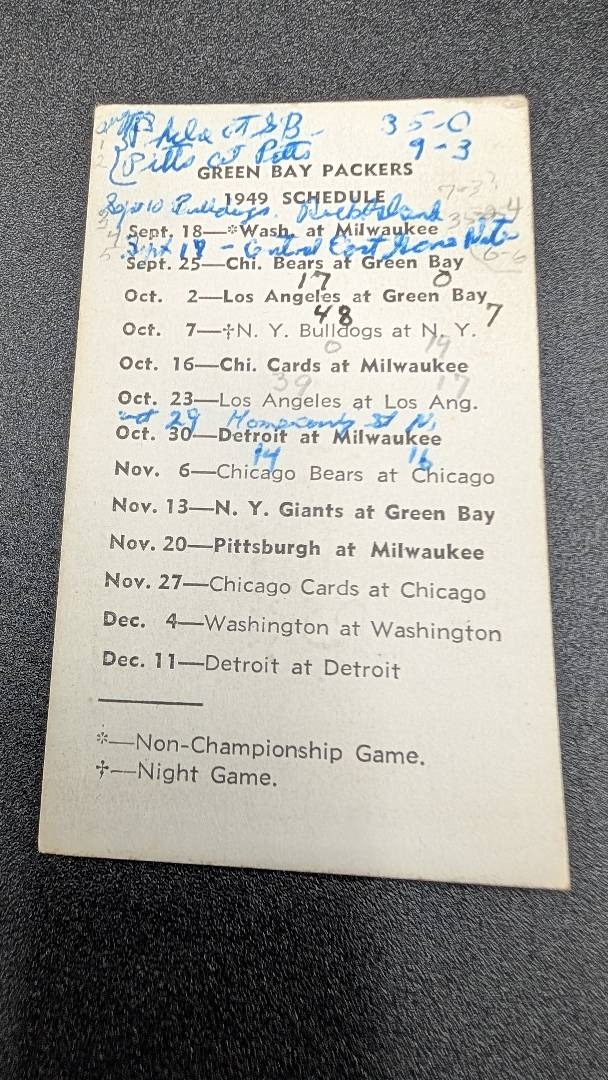 at GB 35-0
Pitts at Pitts 9-3
GREEN BAY PACKERS
7-3
1949 SCHEDULE
Sept 10 Bulldogs. Rock Island
Sept. 18—*Wash. at Milwaukee
Sept 18 -
6-6
Sept. 25—Chi. Bears at Green Bay
17 0
Oct. 2—Los Angeles at Green Bay
48 7
Oct. 7—†N. Y. Bulldogs at N. Y.
0 19
Oct. 16—Chi. Cards at Milwaukee
39 17
Oct. 23—Los Angeles at Los Ang.
Oct 29
Oct. 30—Detroit at Milwaukee
14 16
Nov. 6—Chicago Bears at Chicago
Nov. 13—N. Y. Giants at Green Bay
Nov. 20—Pittsburgh at Milwaukee
Nov. 27—Chicago Cards at Chicago
Dec. 4—Washington at Washington
Dec. 11—Detroit at Detroit
*—Non-Championship Game.
†—Night Game.